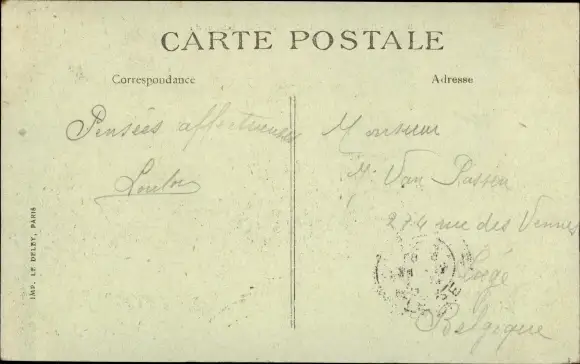 CARTE POSTALE
Correspondance
Adresse
Pensées affectueuses
Monsieur
Van Passen
274 rue des Vennes
Liège
Belgique
IMP. LE DELEY, PARIS